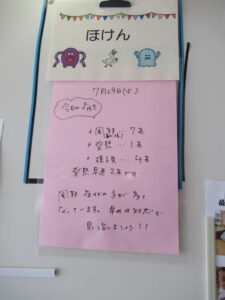 ほけん
7月29日(火)
今日の
・風邪… 7名
・発熱… 1名
・ … 4名
発熱早退 2名です
風邪症状の子が多く
なっています。早めの対応で
早く治しましょう!!